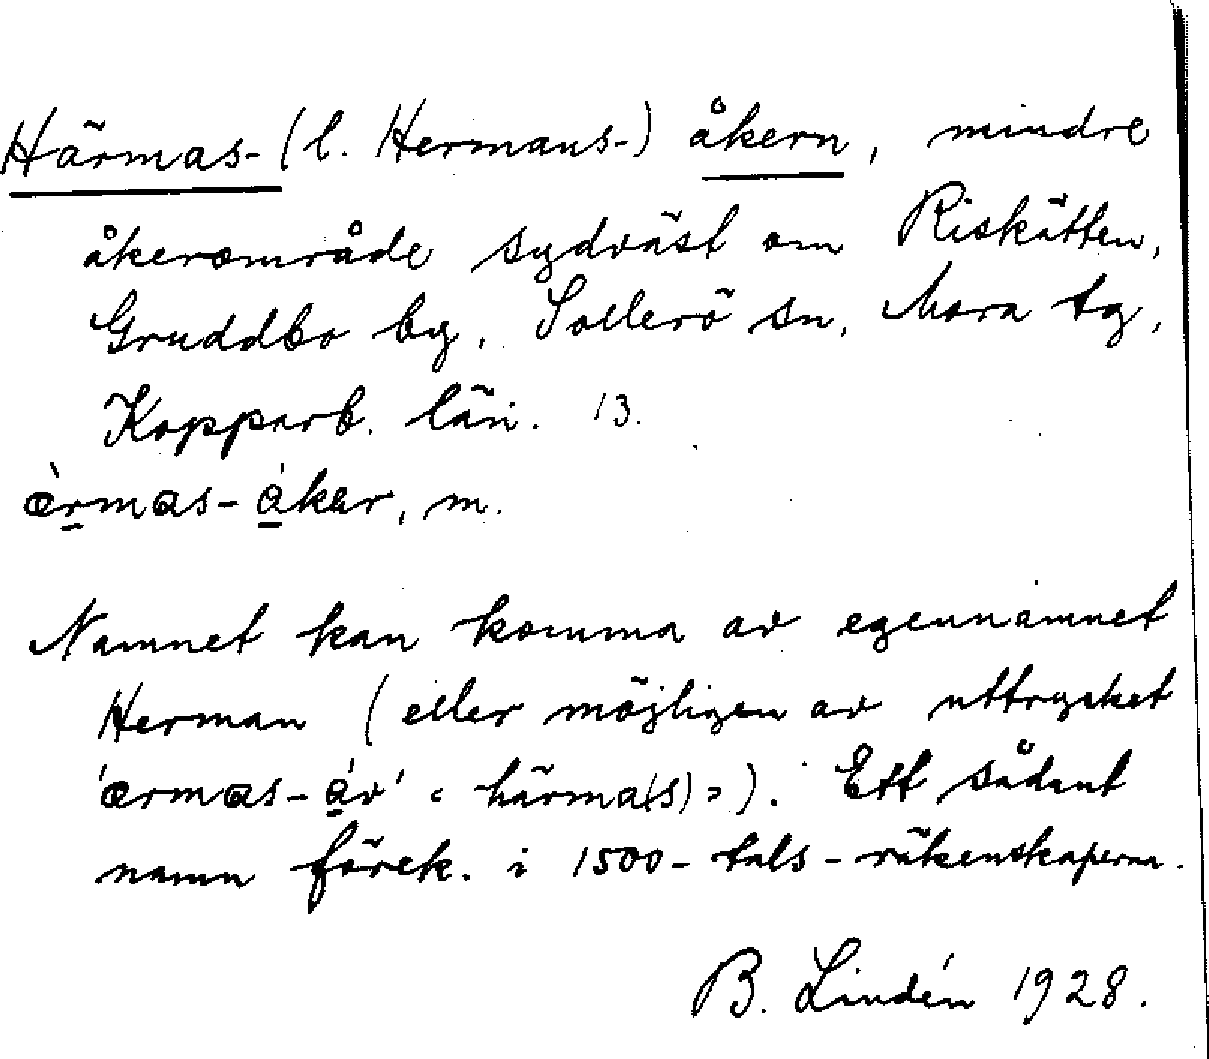 Härmas- (l. Hermans-) åkern, mindre
åkerområde sydväst om Riskätten,
Gruddbo by, Sollerö sn, Mora tg,
Kopparb. län. 13.
æ̀rmas-åkær, m.
Namnet kan komma av egennamnet
Herman (eller möjligen av uttrycket
'ærmas-áv' «härma(s)»). Ett sådant
namn förek. i 1500-tals-räkenskaperna.
B. Lindén 1928.